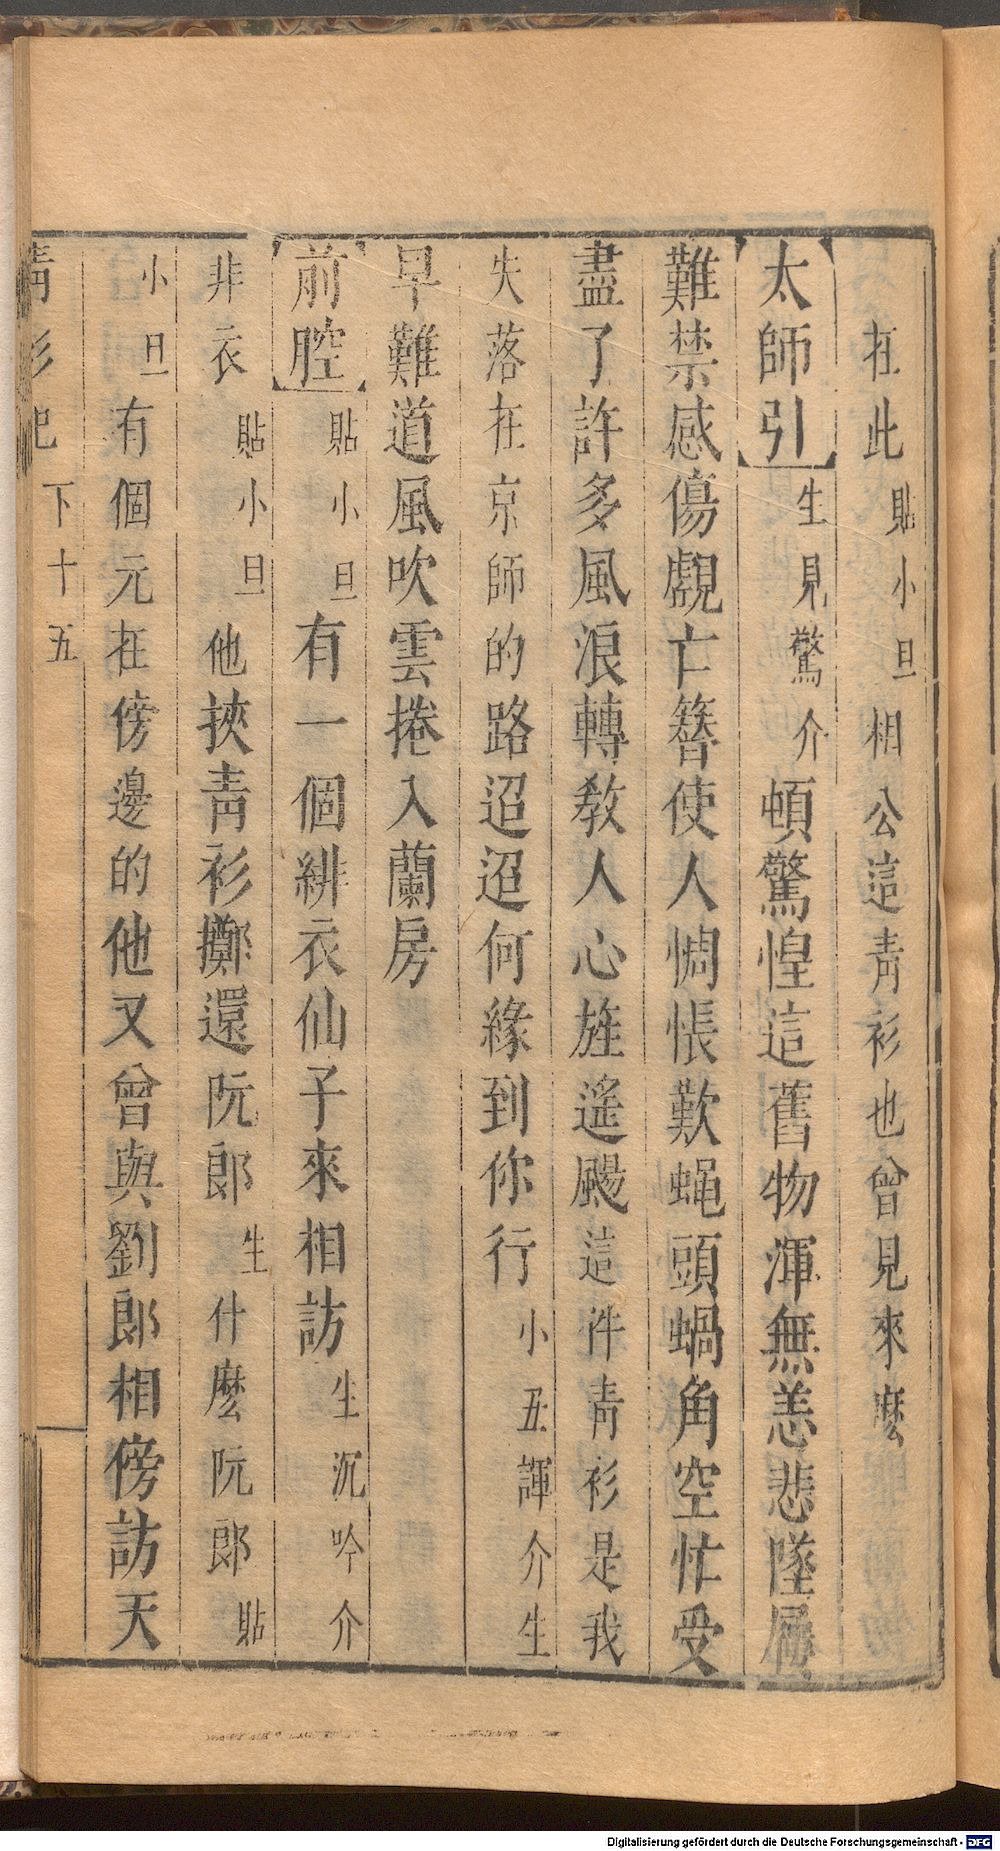 在此貼小旦相公這青衫也曾見來麼
太師引生見驚介頓驚惶這舊物渾無恙悲墜屨
難禁感傷覷亡簪使人惆悵歎蠅頭蝸角空忙受
盡了許多風浪轉教人心旌遙颺這件青衫是我
失落在京師的路迢迢何緣到你行小丑諢介生
早難道風吹雲捲入蘭房
前腔貼小旦有一個緋衣仙子來相訪生沉吟介
非衣貼小旦他挾青衫擲還阮郎生什麼阮郎貼
小旦有個元在傍邊的他又曾與劉郎相傍訪天
青衫記下十五
Digitalisierung gefördert durch die Deutsche Forschungsgemeinschaft - DFG